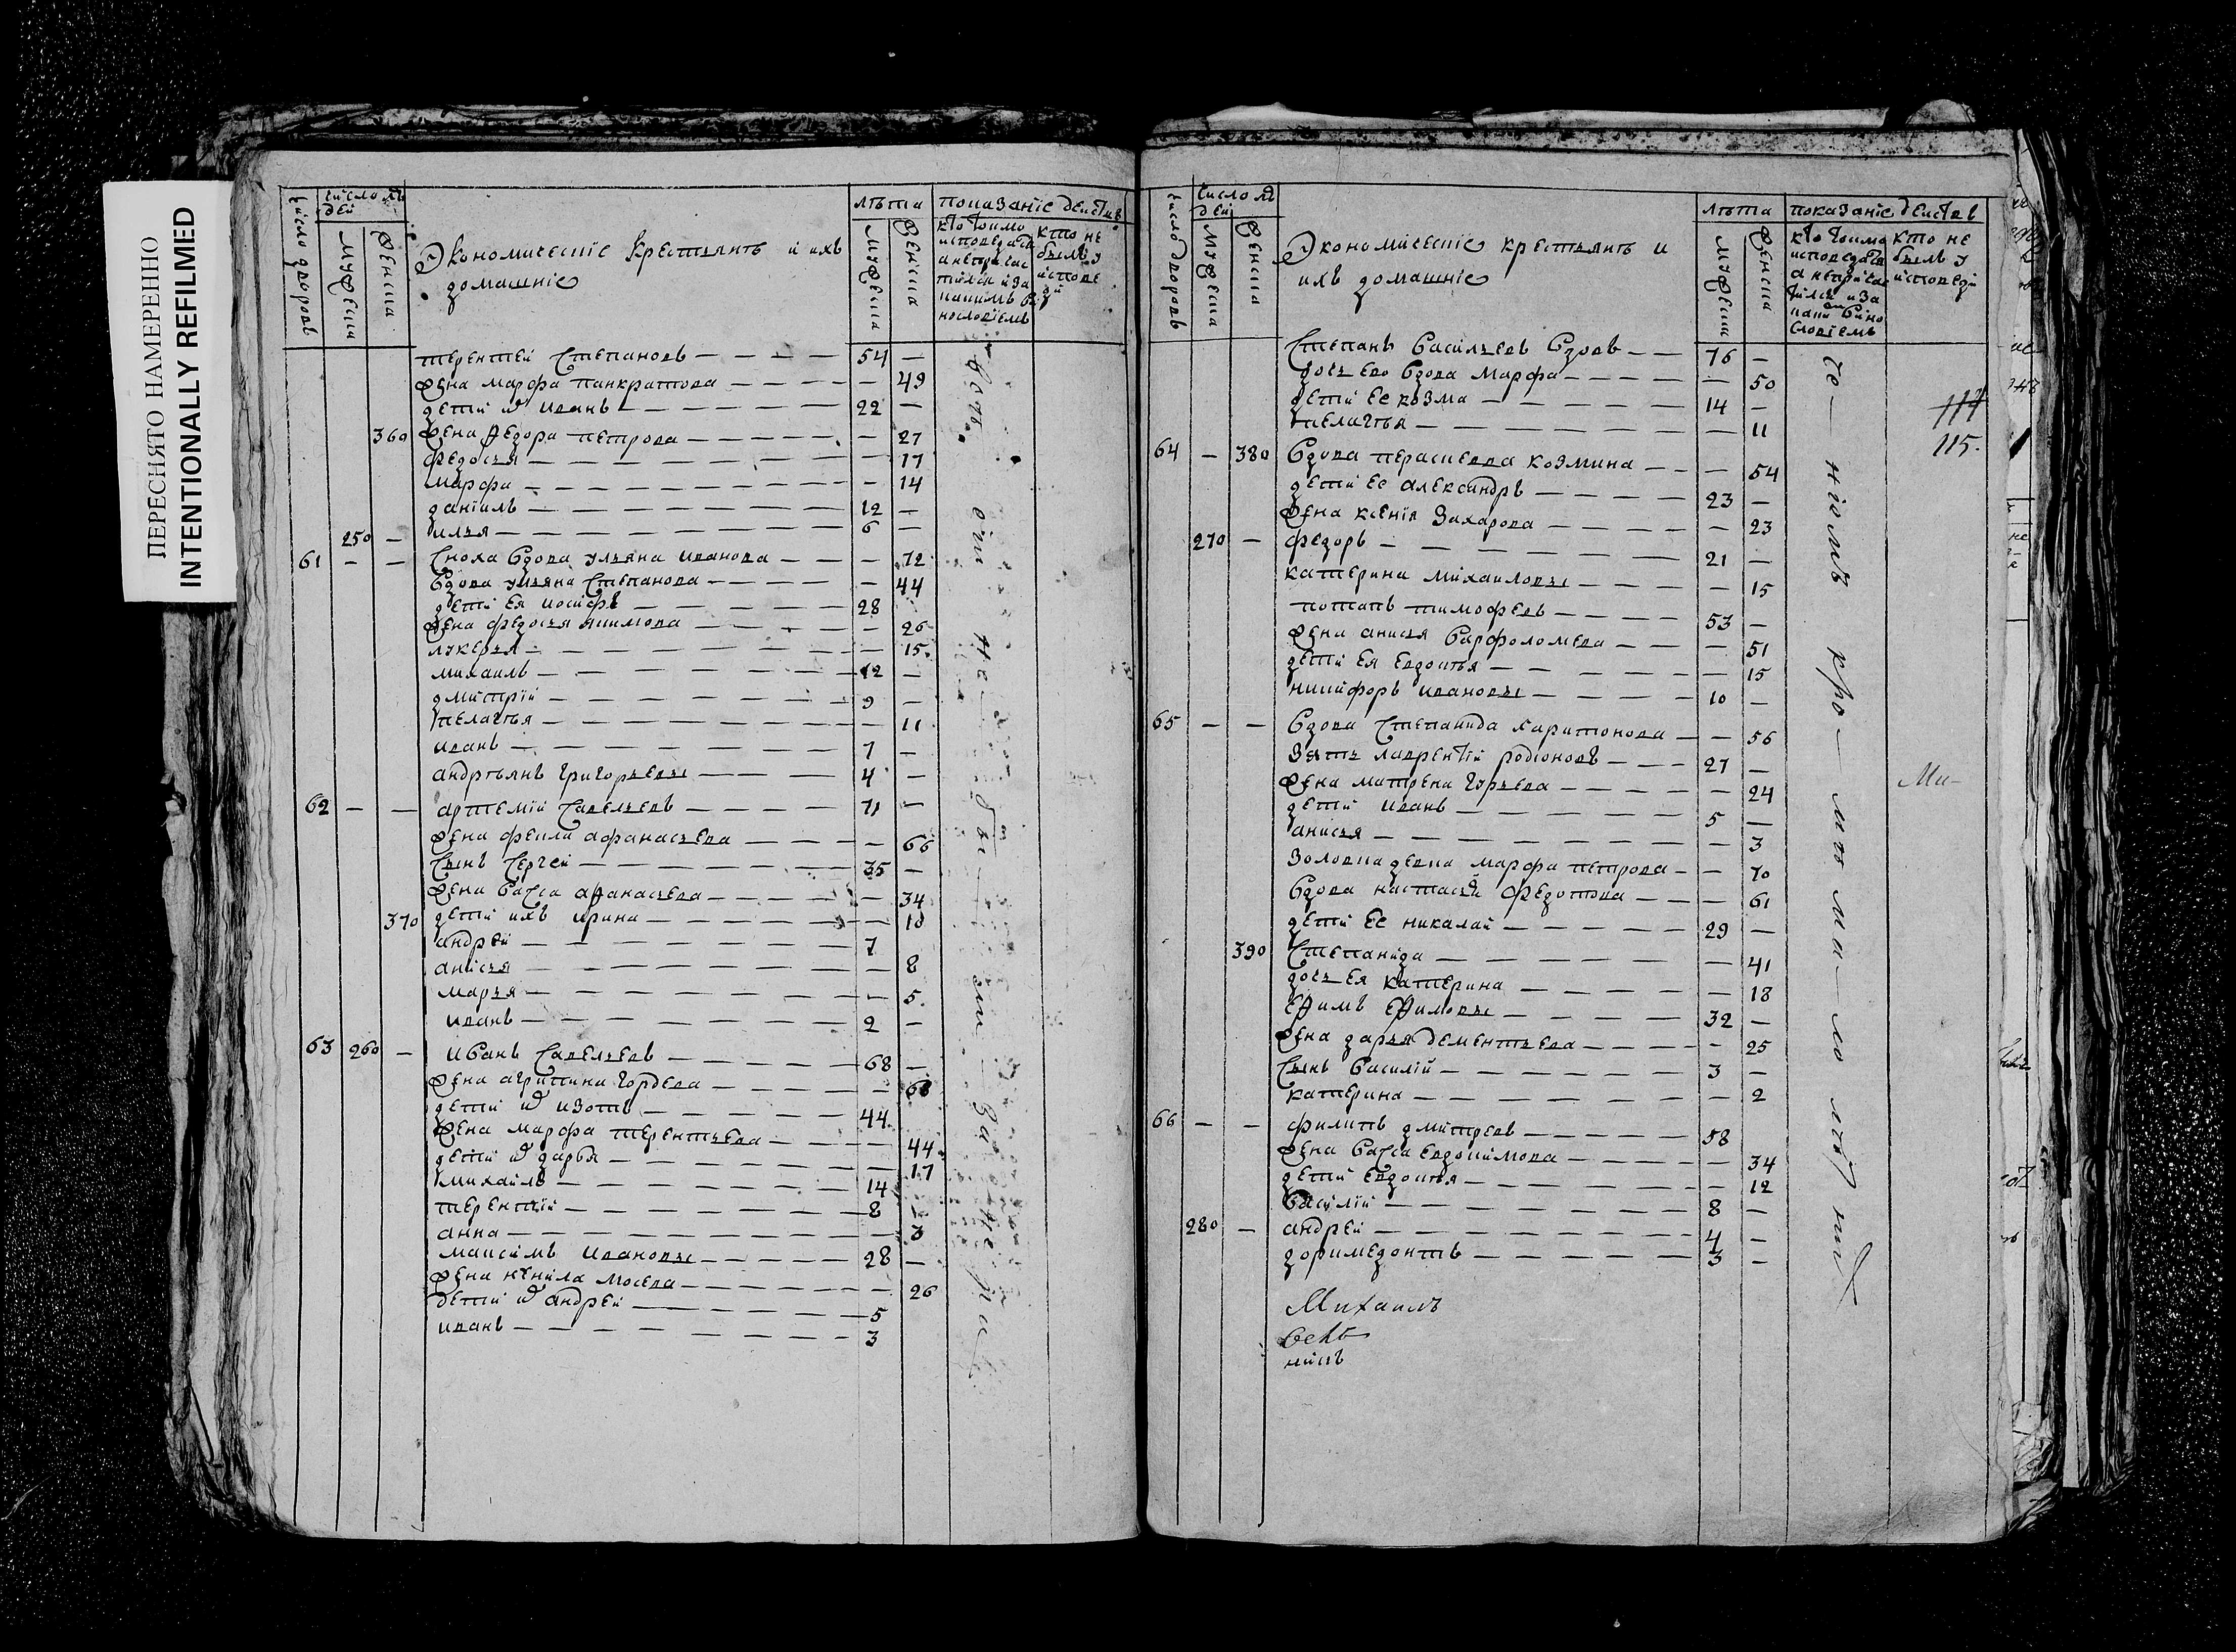 ПЕРЕСНЯТО НАМЕРЕННО
INTENTIONALLY REFILMED
число дворовъ
число лю
дей
мужеска
женска
Экономическiе Крестьянъ и ихъ
домашнiе
лѣта
мужеска
женска
показанiе действ
кто не
былъ у
исповеди
терентей Степановъ — 54 —
жена марфа панкратова — — 49
дети иванъ — 22 —
360 жена федора петрова — — 27
федосья — — 17
марфа — — 14
данiилъ — 12 —
250 — илья — 6 —
61 — — Сноха вдова ульяна иванова — — 72
вдова ульяна Степанова — — 44
дети ея иосифъ — 28
жена федосья якимова — — 26
лукерья — — 15
михаилъ — 12 —
дмитрiй — 9 —
пелагѣя — — 11
иванъ — 7 —
андрѣянъ григорьевы — 4 —
62 — — артемiй Савельевъ — 71 —
жена фекла афанасьева — — 66
Сынъ Сергей — 35 —
жена васса афанасьева — — 34
370 дети ихъ ирина — — 10
андрей — 7
анисья — — 8
марья — — 5
иванъ — 2 —
63 260 — иванъ Савельевъ — 68 —
жена агрипина гордева — — 68
дети изотъ — 44
жена марфа терентьева — — 44
дети дарья — — 17
михайлъ — 14
терентiй — 8 —
анна — — 3
максимъ ивановы — 28 —
жена ненила мосева — — 26
дети андрей — 5
иванъ — 3
число дворовъ
число лю
дей
мужеска
женска
Экономическiе крестьянъ и
ихъ домашнiе
лѣта
мужеска
женска
показанiе действ
кто не
былъ у
исповеди
114
115.
Степанъ васильевъ вдовъ — 76 —
дочь ево вдова марфа — — 50
дети ее козма — 14 —
пелагѣя — — 11
64 — 380 вдова парасковва козмина — — 54
дети ее александръ — 23 —
жена ксенiя захарова — — 23
270 — федоръ — 21 —
катерина михаиловы — — 15
потапъ тимофевъ — 53 —
жена анисья варфоломева — — 51
дети ея евдокѣя — — 15
никифоръ ивановы — 10 —
65 — — вдова Степанида харитонова — — 56
зять лаврентiй родионовъ — 27 —
жена матрена гурьева — — 24
дети иванъ — 5 —
анисья — — 3
золовка девка марфа петрова — — 70
вдова настасья федотова — — 61
дети ее никалай — 29 —
390 Степанида — — 41
дочь ея катерина — — 18
ефимъ ефимовы — 32 —
жена дарья дементьева — — 25
Сынъ василiй — 3 —
катерина — — 2
66 — — филипъ дмитревъ — 58
жена васса евдокимова — — 34
дети евдокѣя — — 12
василiй — 8 —
280 — андрей — 4 —
доримедонтъ — 3 —
Ми-
Михаилъ